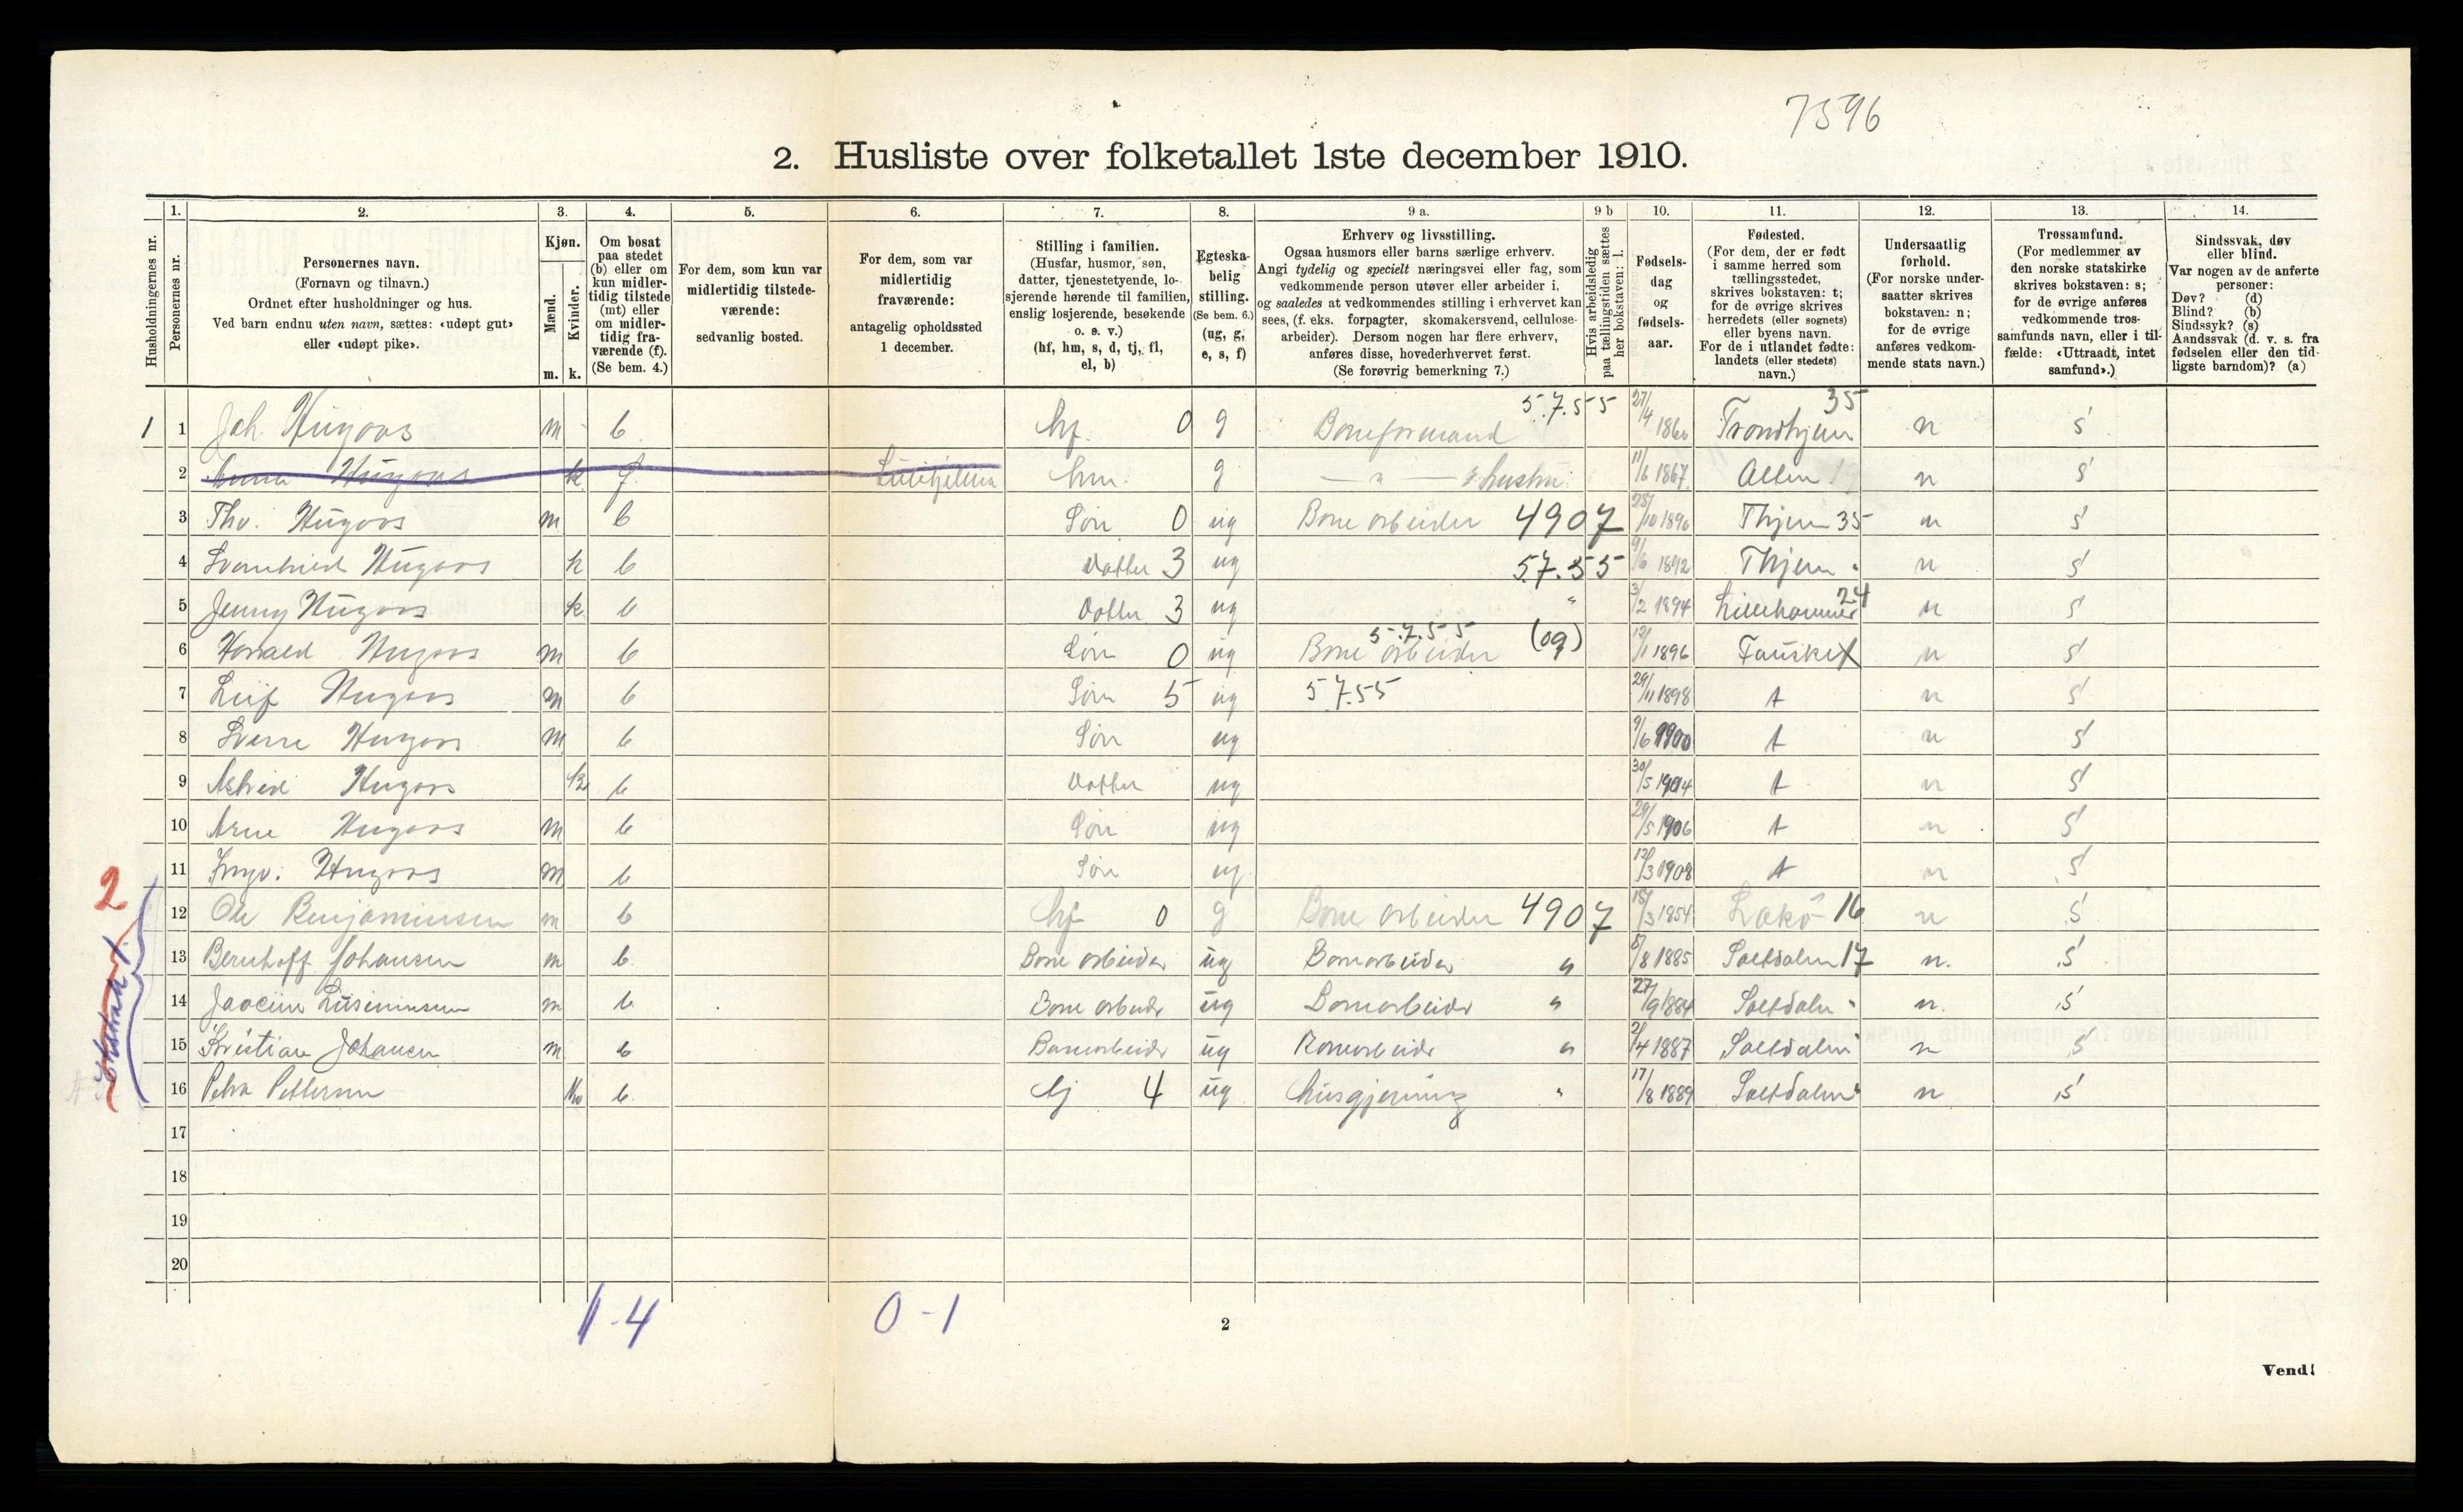 7596
2. Husliste over folketallet 1ste december 1910.
1. 2. 3. 4. 5. 6. 7. 8. 9 a. 9 b 10. 11. 12. 13. 14.
Husholdningernes nr.
Personernes nr.
Personernes navn.
(Fornavn og tilnavn.)
Ordnet efter husholdninger og hus.
Ved barn endnu uten navn, sættes: «udøpt gut»
eller «udøpt pike».
Kjøn.
Mænd.
Kvinder.
m. k.
Om bosat
paa stedet
(b) eller om
kun midler-
tidig tilstede
(mt) eller
om midler-
tidig fra-
værende (f).
(Se bem. 4.)
For dem, som kun var
midlertidig tilstede-
værende:
sedvanlig bosted.
For dem, som var
midlertidig
fraværende:
antagelig opholdssted
1 december.
Stilling i familien.
(Husfar, husmor, søn,
datter, tjenestetyende, lo-
sjerende hørende til familien,
enslig losjerende, besøkende
o. s. v.)
(hf, hm, s, d, tj, fl,
el, b)
Egteska-
belig
stilling.
(Se bem. 6.)
(ug, g,
e, s, f)
Erhverv og livsstilling.
Ogsaa husmors eller barns særlige erhverv.
Angi tydelig og specielt næringsvei eller fag, som
vedkommende person utøver eller arbeider i,
og saaledes at vedkommendes stilling i erhvervet kan
sees, (f. eks. forpagter, skomakersvend, cellulose-
arbeider). Dersom nogen har flere erhverv,
anføres disse, hovederhvervet først.
(Se forøvrig bemerkning 7.)
Hvis arbeidsledig
paa tællingstiden sættes
her bokstaven: l.
Fødsels-
dag
og
fødsels-
aar.
Fødested.
(For dem, der er født
i samme herred som
tællingsstedet,
skrives bokstaven: t;
for de øvrige skrives
herredets (eller sognets)
eller byens navn.
For de i utlandet fødte:
landets (eller stedets)
navn.)
Undersaatlig
forhold.
(For norske under-
saatter skrives
bokstaven: n;
for de øvrige
anføres vedkom-
mende stats navn.)
Trossamfund.
(For medlemmer av
den norske statskirke
skrives bokstaven: s;
for de øvrige anføres
vedkommende tros-
samfunds navn, eller i til-
fælde: «Uttraadt, intet
samfund».)
Sindssvak, døv
eller blind.
Var nogen av de anførte
personer:
Døv? (d)
Blind? (b)
Sindssyk? (s)
Aandssvak (d. v. s. fra
fødselen eller den tid-
ligste barndom)? (a)
1 1 Joh Hugaas m b hf. 0 g Boreformand 5.7.55 27/4 1860 Trondhjem 35 n s
2 Anna Hugaas k f hm. g — " — s hustru 11/6 1867 n s
3 Thv. Hugaas m b Søn 0 ug Bore arbeider 4907 28/10 1890 Thjem 35 n s
4 Hugaas k b Datter 3 ug 57.55 9/6 1892 Thjem " n s
5 Jenny Hugaas k b Datter 3 ug " 3/2 1894 Lillehammer 24 n s
6 Harald Hugaas m b Søn 0 ug Bore arbeider 5.7.55 (og) 12/1 1896 Fauske n s
7 Leif Hugaas m b Søn 5 ug 5755 29/11 1898 t n s
8 Sverre Hugaas m b Søn ug 9/6 1900 t n s
9 Astrid Hugaas k b Datter ug 30/5 1904 t n s
10 Arne Hugaas m b Søn ug 29/5 1906 t n s
11 Ingv. Hugaas m b Søn ug 12/3 1908 t n s
2
12 Ole Benjaminsen m b hf 0 g Bore arbeider 4907 18/3 1854 16 n s
13 Bernhoff Johansen m b Bore arbeider ug Borearbeider " 8/8 1885 Saltdalen 17 n. s
14 m b Bore arbeider ug Borearbeider " 27/9 1884 Saltdalen " n. s
15 Kristian Johansen m b Borearbeider ug Borearbeider " 2/4 1887 Saltdalen " n s
16 Petra Pettersen k b tj 4 ug husgjerning " 17/8 1889 Saltdalen " n s
17
18
19
20
1-4 0-1
2
Vend!